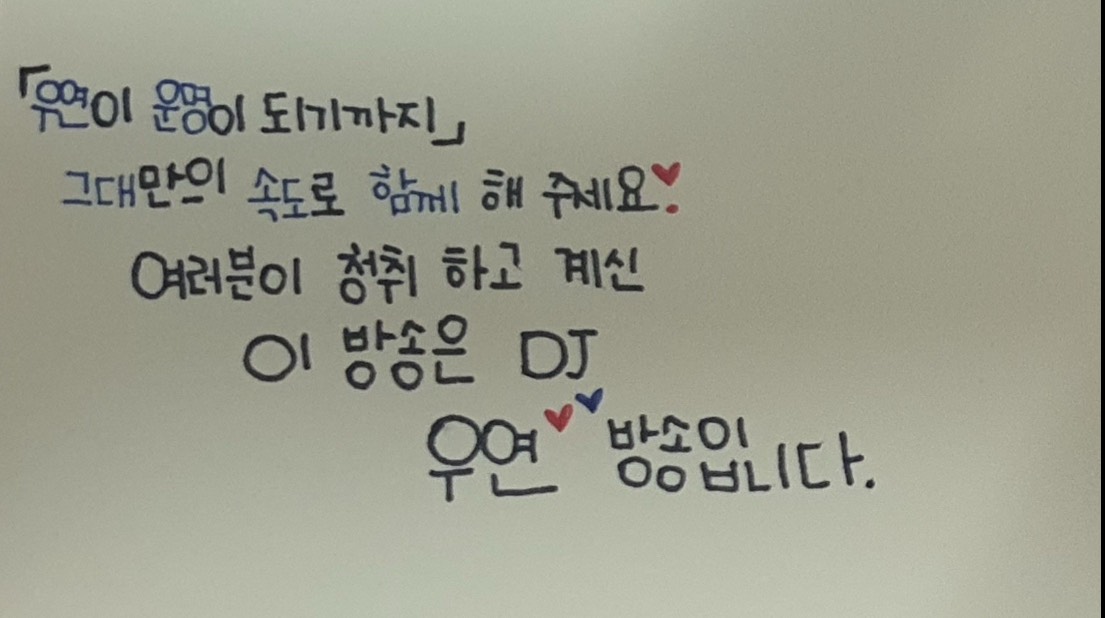 「우연이 운명이 되기까지」
그대만의 속도로 함께 해 주세요♥.
여러분이 청취 하고 계신
이 방송은 DJ
우연♥♥ 방송입니다.